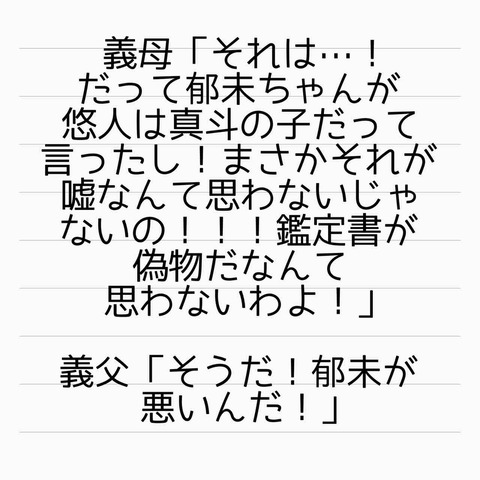 義母「それは…！
だって郁未ちゃんが
悠人は真斗の子だって
言ったし！まさかそれが
嘘なんて思わないじゃ
ないの！！！鑑定書が
偽物だなんて
思わないわよ！」
義父「そうだ！郁未が
悪いんだ！」